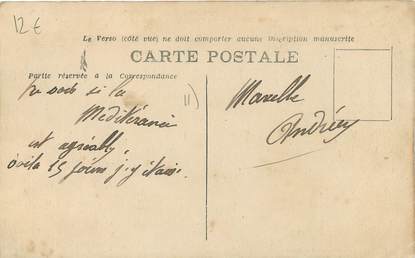 12 €
Le Verso (côté vue) ne doit comporter aucune Inscription manuscrite
CARTE POSTALE
Partie réservée à la Correspondance
tu vois si la
Mediteranée
est agréable,
voila 15 jours j'y étais.
11)
Andrée